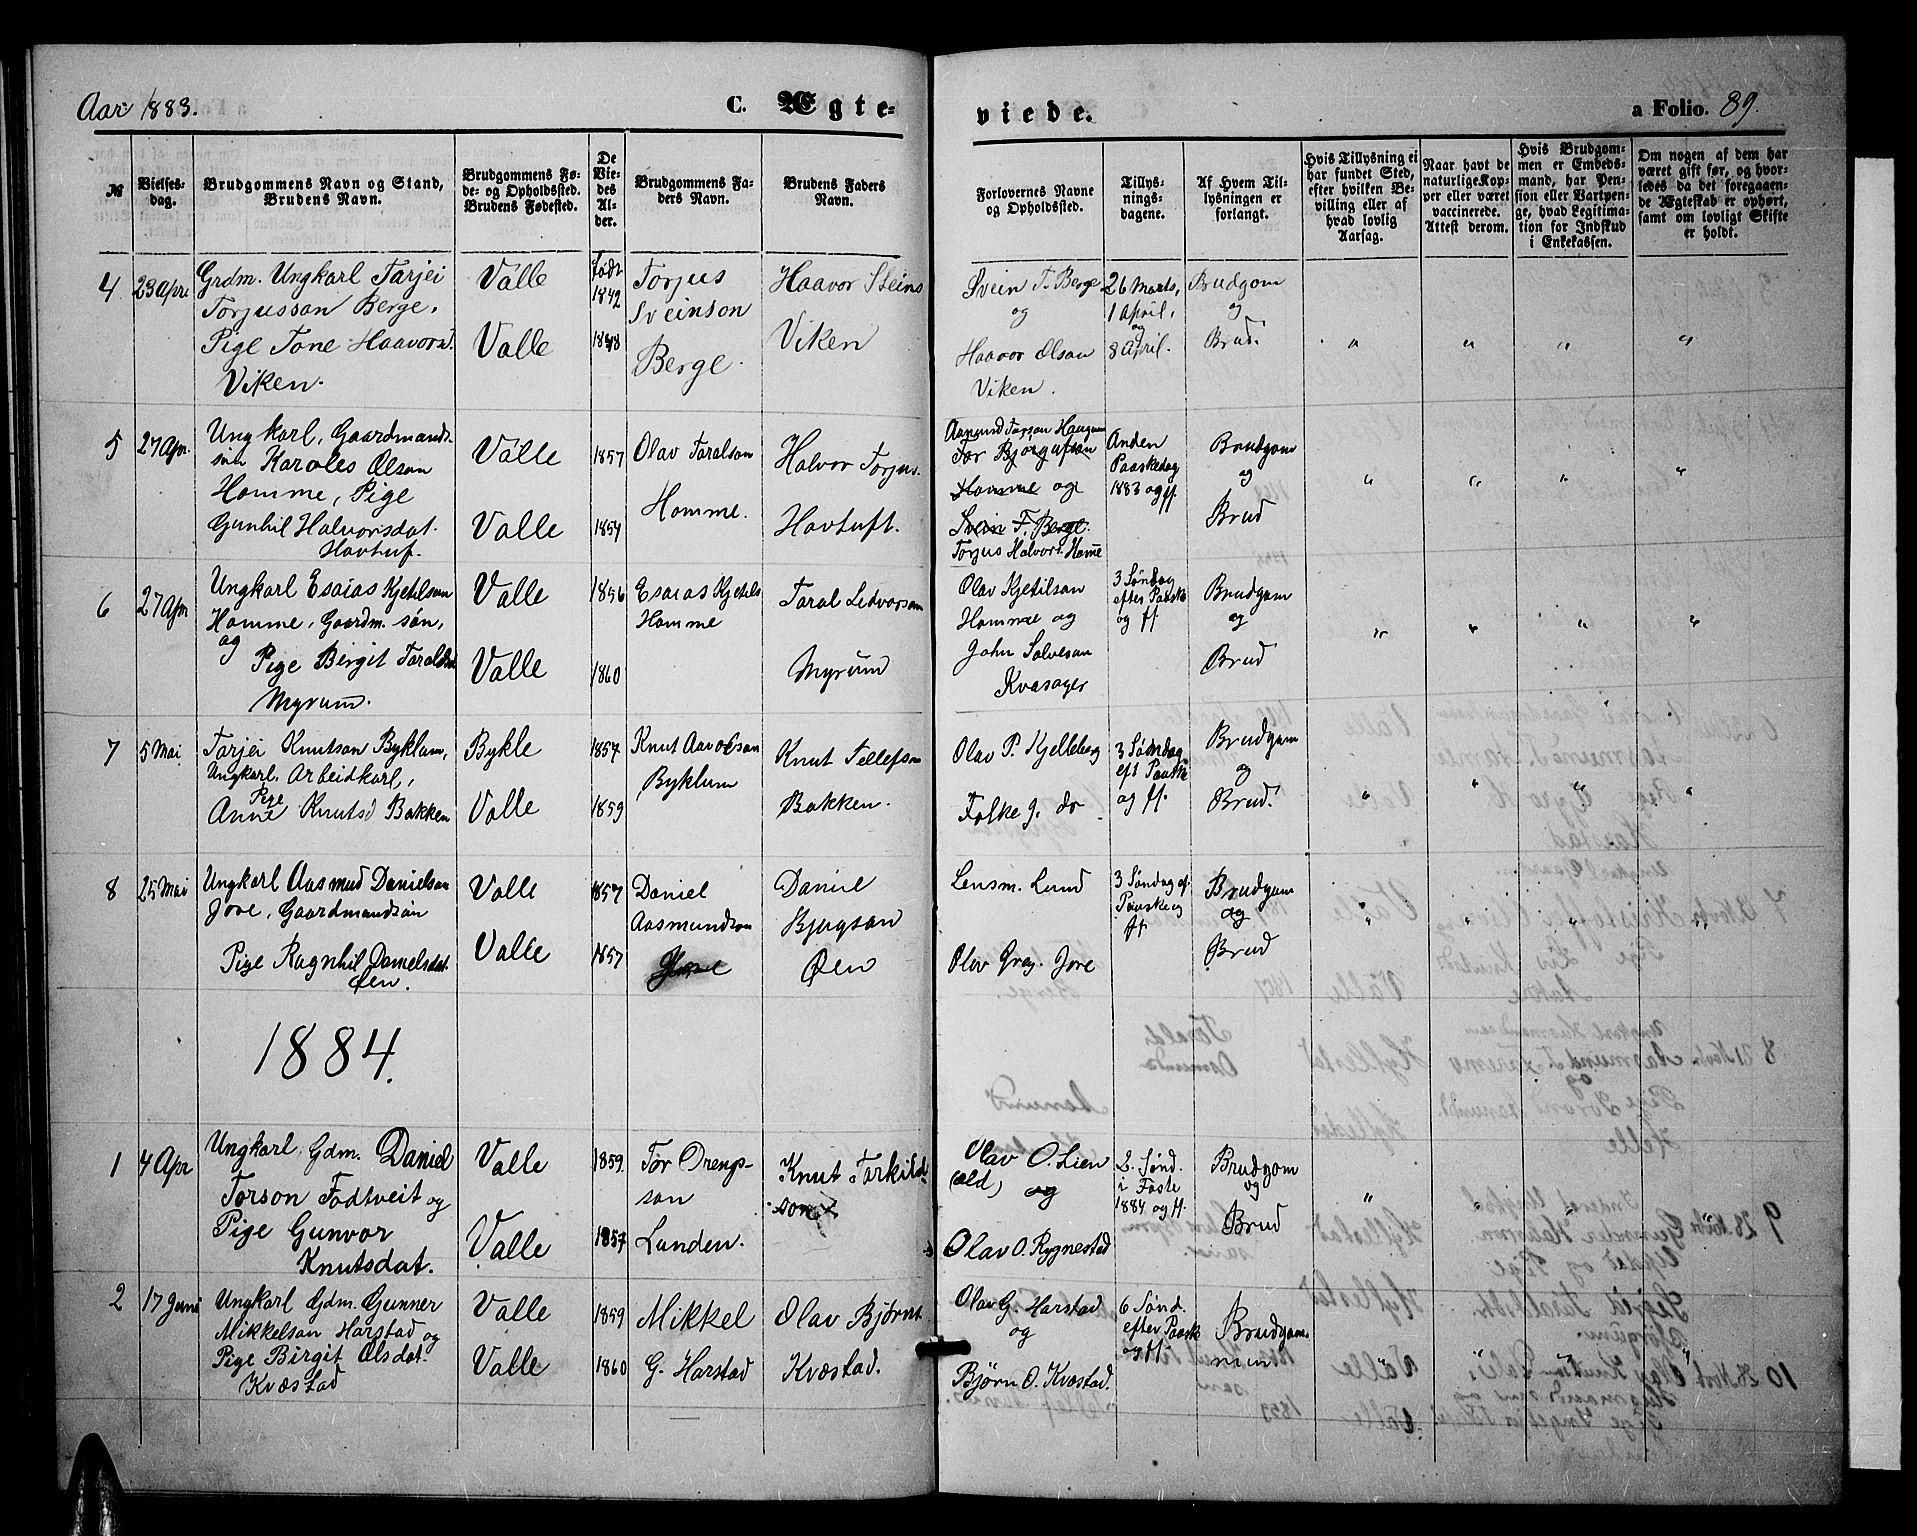 Aar 1883.
C. Ægte-
viede.
a Folio. 89.
№
Vielses-
dag.
Brudgommens Navn og Stand,
Brudens Navn.
Brudgommens Fø-
de- og Opholdssted.
Brudens Fødested.
De
Vie-
des
Al-
der.
Brudgommens Fa-
ders Navn.
Brudens Faders
Navn.
Forlovernes Navne
og Opholdssted.
Tillys-
nings-
dagene.
Af Hvem Til-
lysningen er
forlangt.
Hvis Tillysning ei
har fundet Sted,
efter hvilken Be-
villing eller af
hvad lovlig
Aarsag.
Naar havt de
naturlige Kop-
per eller været
vaccinerede.
Attest derom.
Hvis Brudgom-
men er Embeds-
mand, har Pen-
sion eller Vartpen-
ge, hvad Legitima-
tion for Indskud
i Enkekassen.
Om nogen af dem har
været gift før, og hvor-
ledes da det foregaaen-
de Ægteskab er ophørt,
samt om lovligt Skifte
er holdt.
4
23 Apr
Grdm. Ungkarl Tarjei
Torjusson Berge,
Pige Tone Haavorsd.
Viken.
Valle
Valle
født
1842
1848
Torjus
Sveinson
Berge.
Haavor Steins
Viken
Svein T. Berge
og
Haavor Olsan
Viken.
26 Marts,
1 April,
og
8 April.
Brudgom
og
Brud.
" " " "
5
27 Apr.
Ungkarl, Gaardmands-
søn Karoles Olson
Homme, Pige
Gunhil Halvorsdat.
Hovtuf.
Valle
Valle
1857
1854
Olav Taralson
Homme.
Halvor Torjus.
Hovtuft.
Aanund Torson Haugum
Tor Bjorgufson
Homme og
Svein T. Berge.
Torjus Halvors. Homme
Anden
Paaskedag
1883 og ff.
Brudgom
og
Brud
" " " "
6
27 Apr
Ungkarl Esaias Kjetilson
Homme, Gaardm. søn,
og
Pige Birgit Taralsdat
Myrum.
Valle
Valle
1856
1860
Esaias Kjetils
Homme
Taral Ledvorson
Myrum
Olav Kjetilson
Homme og
John Salveson
Kvasager
3 Søndag
efter Paaske
og ff.
Brudgom
og
Brud
" " " "
7
5 Mai
Tarjei Knutson Byklum,
Ungkarl, Arbeidkarl,
Pige
Anne Knutsd Bakken
Bykle
Valle
1857
1859
Knut Aavolson
Byklum
Knut Tellefson
Bakken.
Olav P. Kjelleberg
Folke G. do
3 Søndag
eft Paaske
og ff.
Brudgom
og
Brud.
" " " "
8
25 Mai
Ungkarl Aasmud Danielson
Jore, Gaardmandsøn
Pige Ragnhil Danielsdat.
Øen.
Valle
Valle
1857
1857
Daniel
Aasmundson
Jore
Daniel
Bjugson
Øen
Lensm. Lund
Olav Greg. Jore
3 Søndag ef.
Paaske og
ff
Brudgom
og
Brud
" " " "
1884.
1
4 Apr
Ungkarl, Gdm. Daniel
Torson Fodtveit og
Pige Gunvor
Knutsdat.
Valle
Valle
1859.
1857
Tor Drengs-
son
Lunden.
Knut Torkild
son
Olav O. Lien
(æld) og
Olav O. Rygnestad
2. Sønd.
i Faste
1884 og ff.
Brudgom
og
Brud
" " " "
2
17 Juni
Ungkarl Gdm. Gunner
Mikkelson Harstad og
Pige Birgit Olsdat.
Kvæstad
Valle
Valle
1859
1860
Mikkel
G. Harstad
Olav Bjørns.
Kvæstad.
Olav G. Harstad
og
Bjørn O. Kvæstad.
6 Sønd.
efter Paaske
og ff.
Brudgom-
men
" " " "